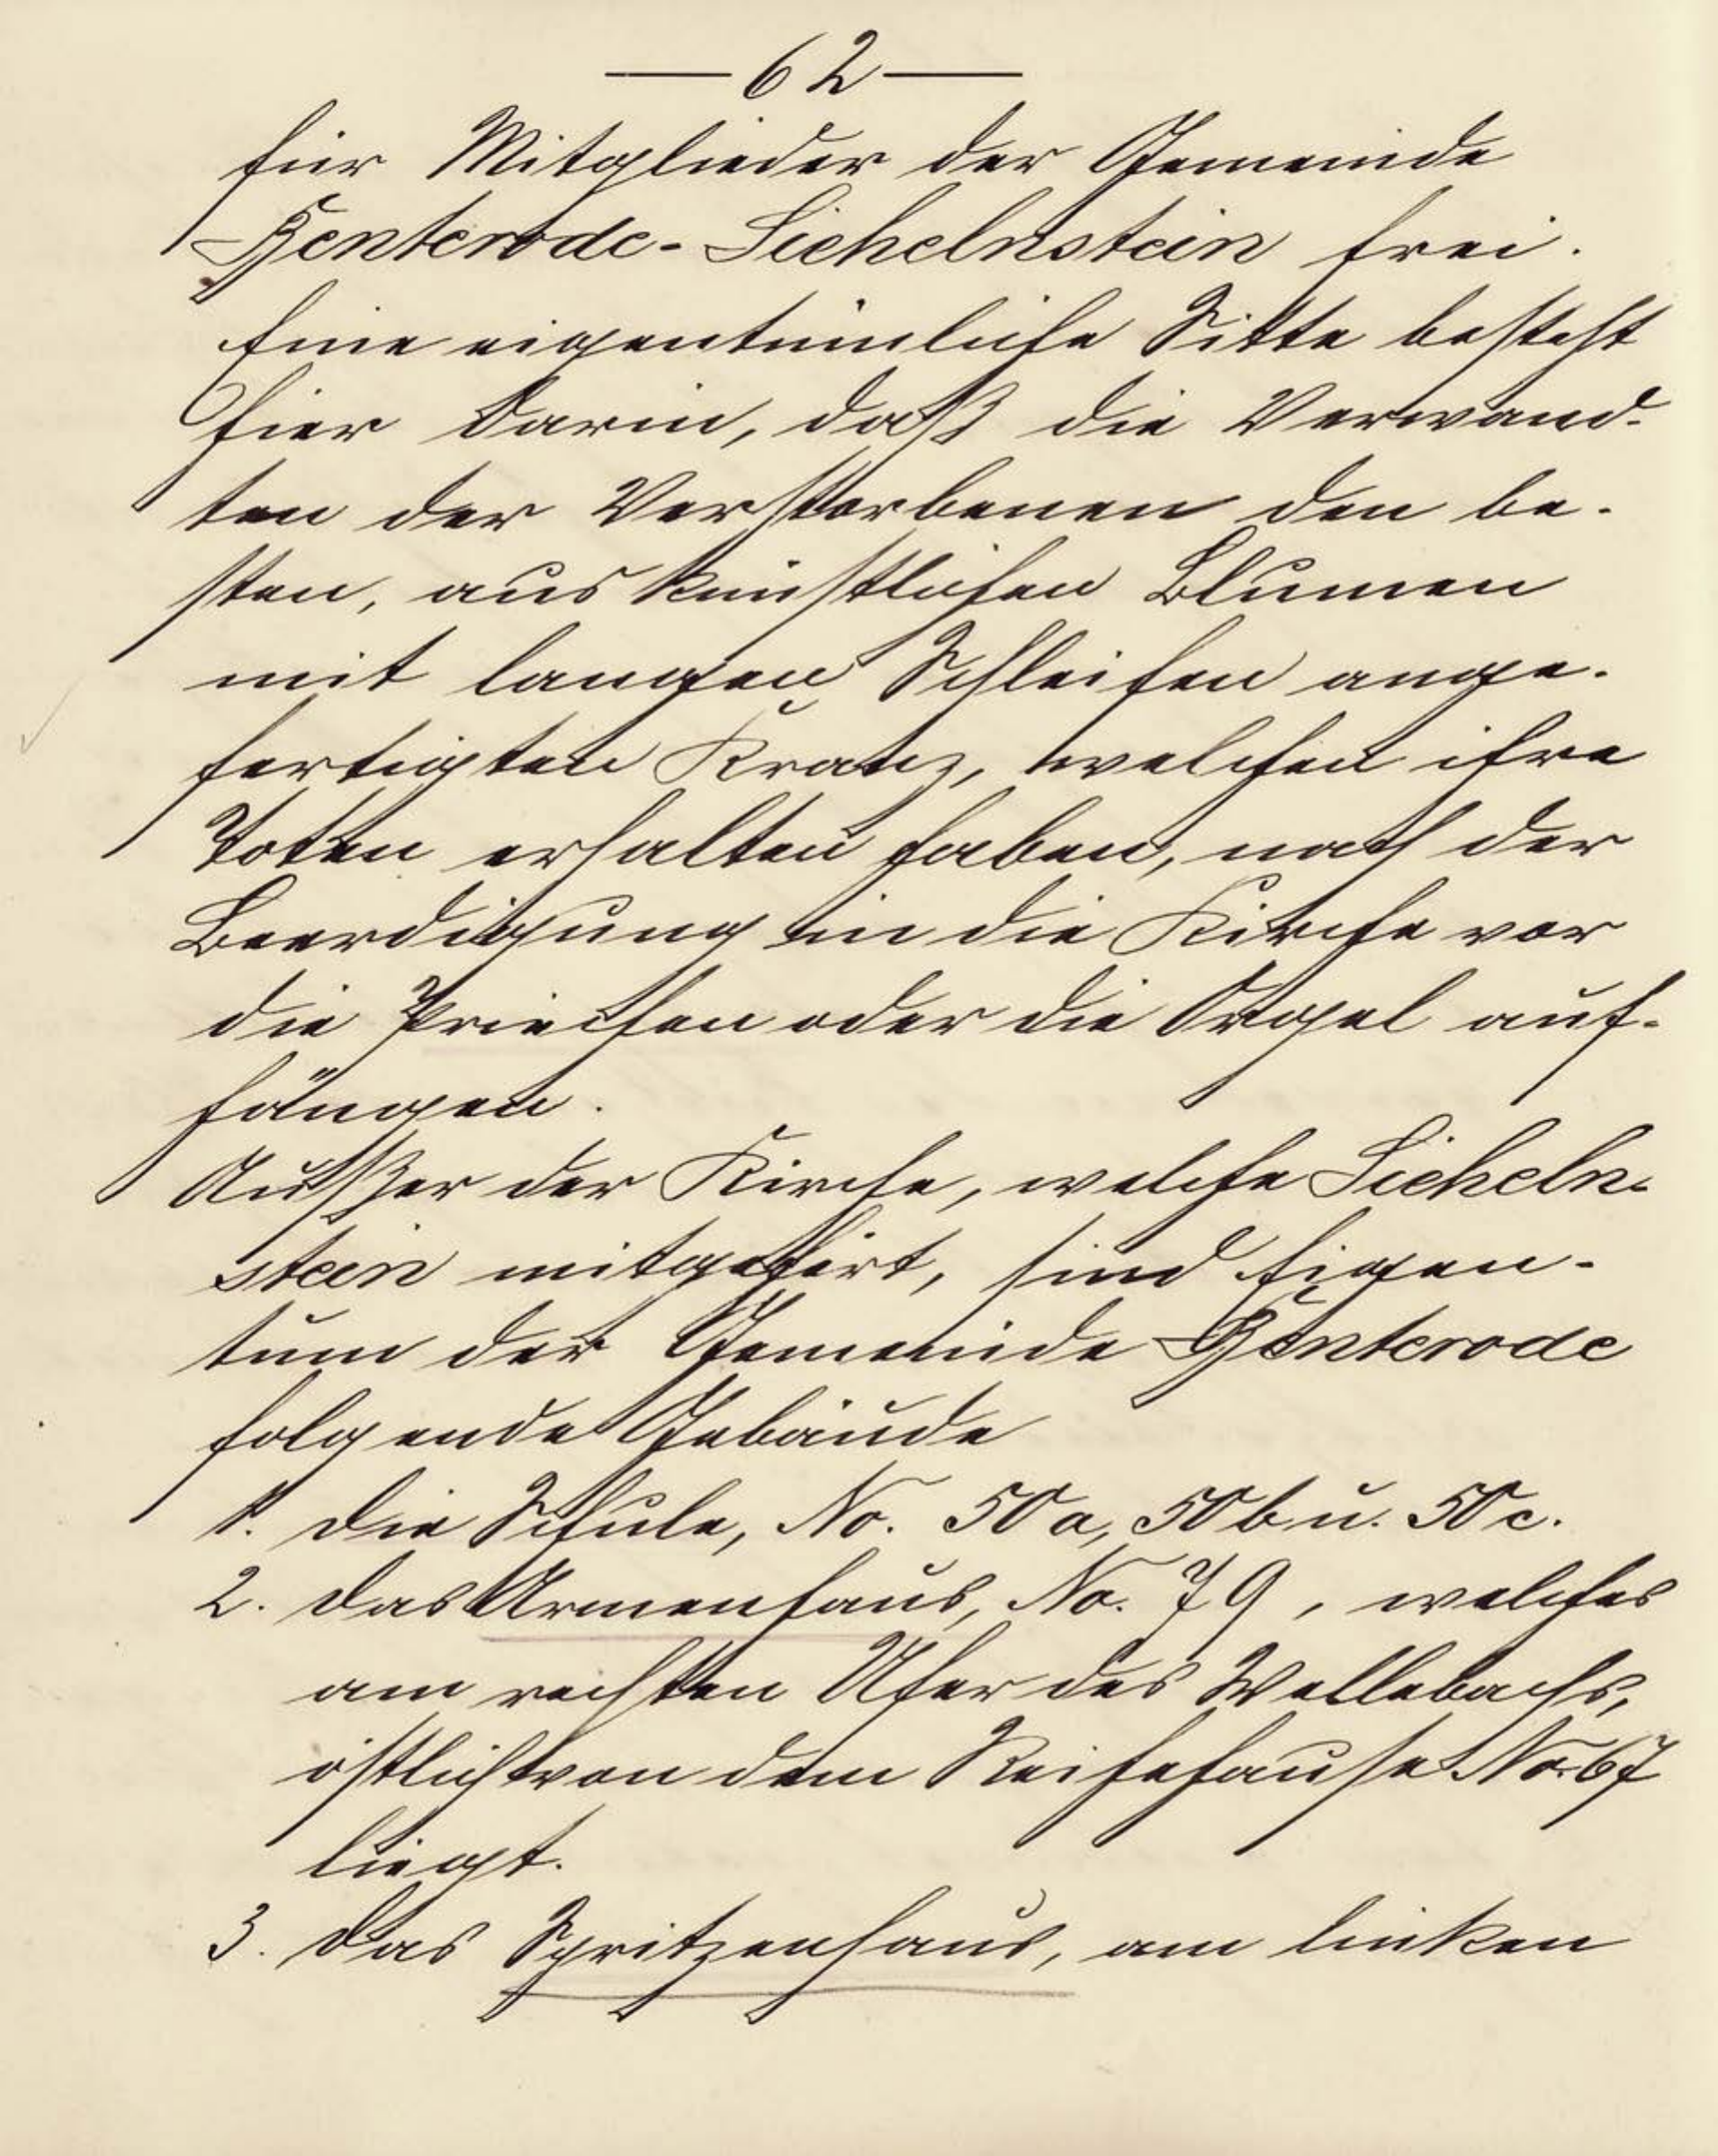 — 62 —
für Mitglieder der Gemeinde
Benterode-Sichelnstein frei.
Eine eigentümliche Sitte besteht
hier darin, daß die Verwand-
ten der Verstorbenen den be-
sten, aus künstlichen Blumen
mit langen Schleifen ange-
fertigten Kranz, welchen ihre
Toten erhalten haben, nach der
Beerdigung in die Kirche vor
die Priechen oder die Orgel auf-
hängen.
Außer der Kirche, welche Sicheln-
stein mitgehört, sind Eigen-
tum der Gemeinde Benterode
folgende Gebäude
1. die Schule, No. 50a, 50b u. 50c.
2. das Armenhaus, No. 79, welches
am rechten Ufer des Wellebachs,
östlich von dem Reihehause No. 67
liegt.
3. das Spritzenhaus, am linken